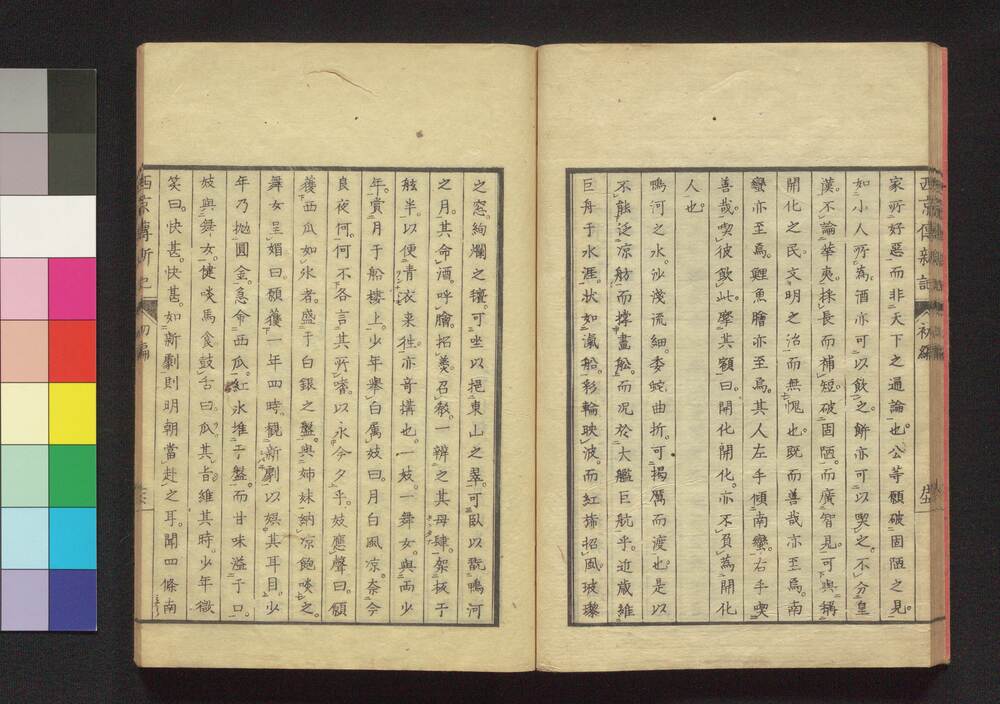 西京傳新記 初編
家所好惡而非天下之通論也。公等願破固陋之見。
如小人所為酒亦可以飲之。餅亦可以喫之。不分皇
漢。不論華夷。採長而補短。破固陋。而廣智見。可與稱
開化之民。文明之治而無愧也。既而善哉亦至焉。南
蠻亦至焉。鯉魚膾亦至焉。其人左手傾南蠻。右手喫
善哉。喫彼飲此。摩其額曰。開化開化。亦不負為開化
人也。
鴨河之水。沙淺流細。委蛇曲折。可揭厲而渡也。是以
不能泛凉舫而撑畫舩。而况於大艦巨航乎。近歲維
巨舟于水涯。状如瀛船。彩輪映波。而紅旆招風。玻瓈
之窓。絢爛之氊。可坐以挹東山之翠。可臥以翫鴨河
之月。其命酒。呼膾。招羹。召殽。一辨之其母肆。架板于
舷半。以便青衣来徃。亦奇搆也。一妓。一舞女。與両少
年。賞月于船樓上。少年舉白属妓曰。月白風凉。奈今
良夜何。何不各言其所嗜。以永今夕乎。妓應聲曰。願
獲西瓜如氷者。盛于白銀之盤。與姉妹納凉飽啖之。
舞女呈媚曰。願獲一年四時。觀新劇。以娯其耳目。少
年乃抛圓金。急命西瓜。紅氷堆于盤。而甘味溢于口。
妓與舞女。健啖馬食。鼓舌曰。瓜。其旨。維其時。少年微
笑曰。快甚。快甚。如新劇則明朝當赴之耳。聞四條南
西京傳新記 初編